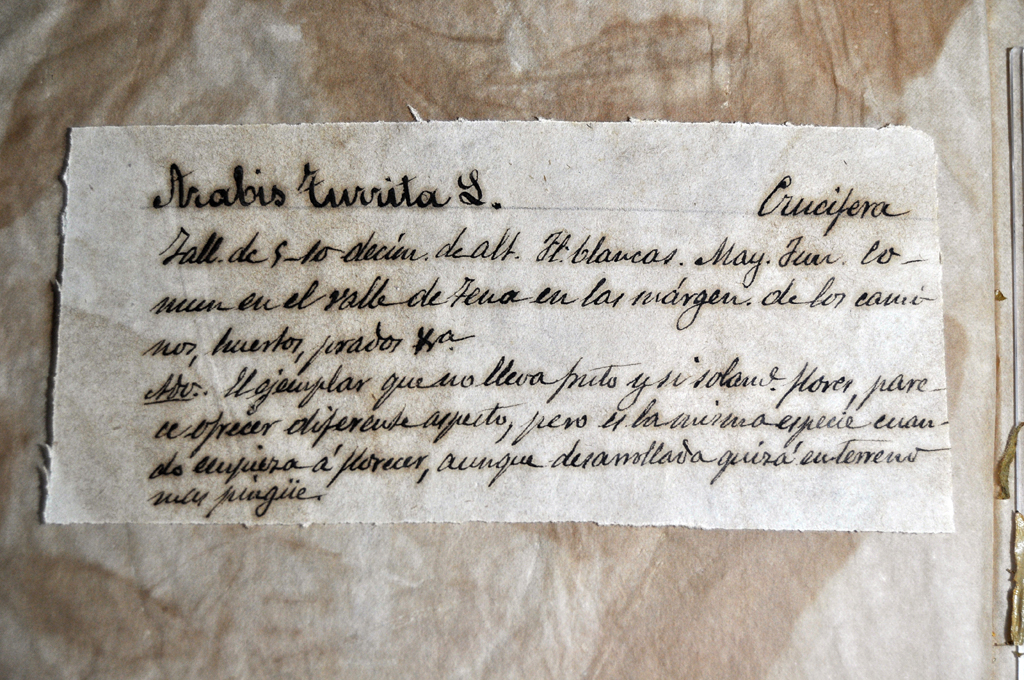 Arabis Turrita L. Crucifera
Tall. de 5-10 decím. de alt. Fl. blancas. May. Jun. Co-
mun en el valle de Tena en las márgen. de los cami-
nos, huertos, prados &ra.
Adv. El ejemplar que no lleva fruto y si solamᵉ. flores, pare-
ce ofrecer diferente aspecto, pero es la misma especie cuan-
do empieza á florecer, aunque desarrollada quizá en terreno
mas pingüe.